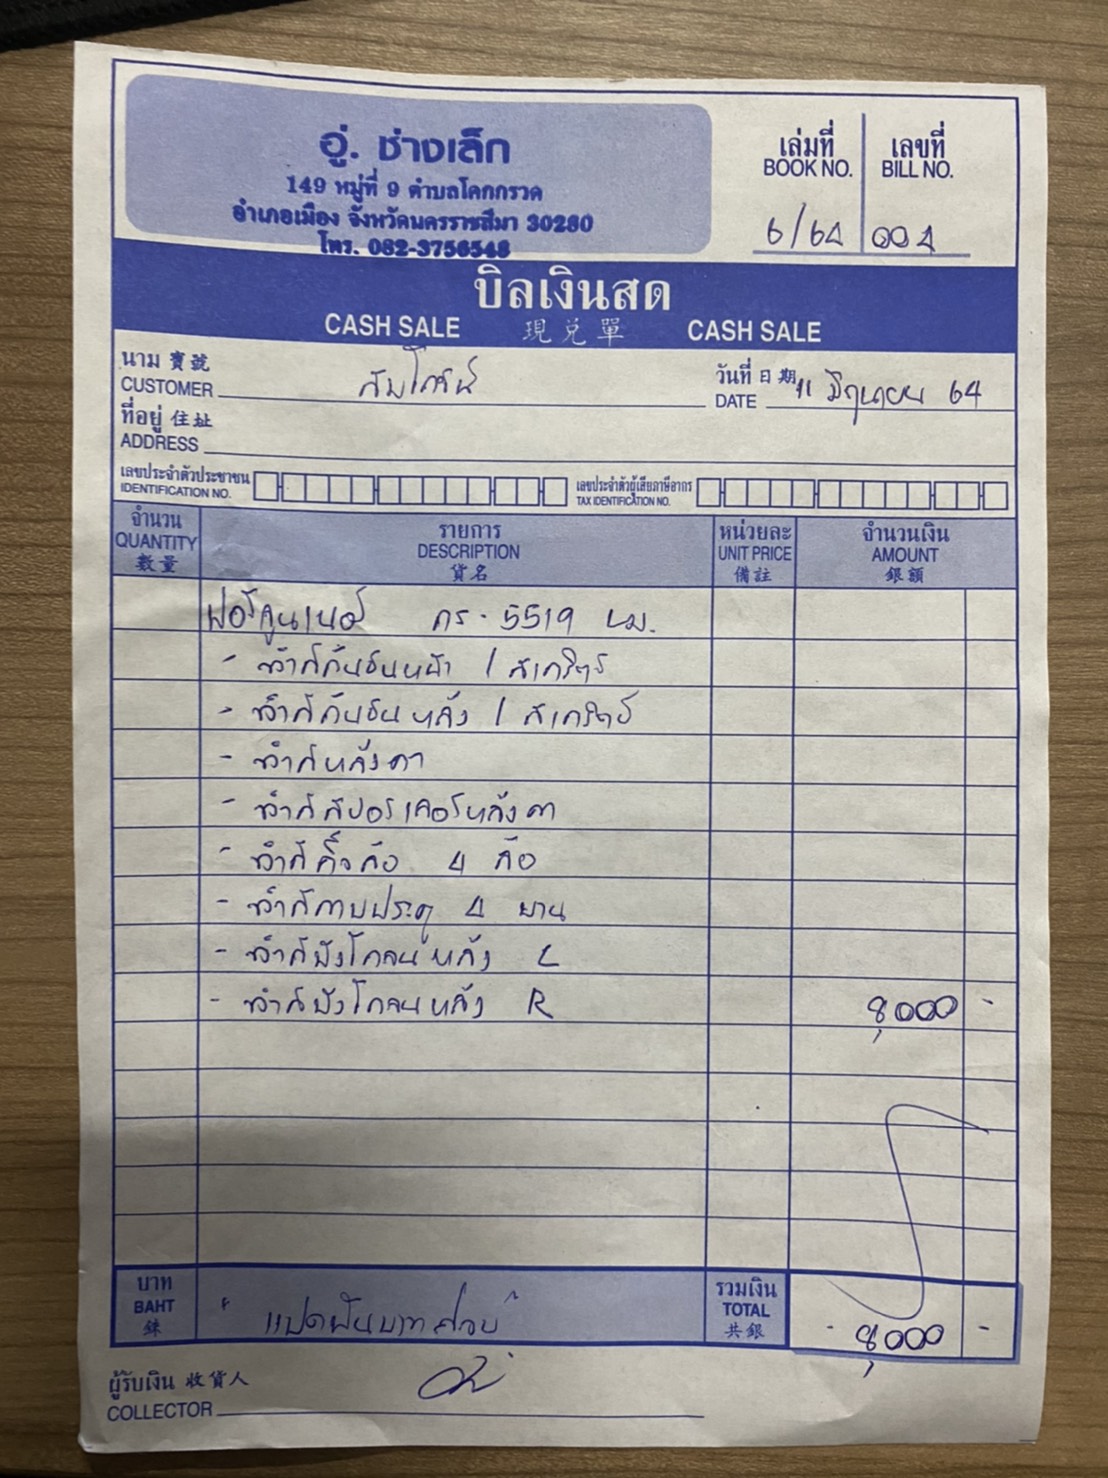 อู่. ช่างเล็ก
149 หมู่ที่ 9 ตำบลโคกกรวด
อำเภอเมือง จังหวัดนครราชสีมา 30280
โทร. 082-3756548
เล่มที่ เลขที่
BOOK NO. BILL NO.
6/64 004
บิลเงินสด
CASH SALE 現兑單 CASH SALE
นาม 寶號
CUSTOMER
วันที่ 日期 11 มิถุนายน 64
DATE
ที่อยู่ 住址
ADDRESS
เลขประจำตัวประชาชน
IDENTIFICATION NO.
เลขประจำตัวผู้เสียภาษีอากร
TAX IDENTIFICATION NO.
จำนวน รายการ หน่วยละ จำนวนเงิน
QUANTITY DESCRIPTION UNIT PRICE AMOUNT
數量 貨名 備註 銀額
ฟอร์จูนเนอร์ กร-5519 นม.
- ทำสีกันชนหน้า / สเกิร์ต
- ทำสีกันชนหลัง / สเกิร์ต
- ทำสีหลังคา
- ทำสีสปอยเลอร์หลังคา
- ทำสีคิ้วล้อ 4 ล้อ
- ทำสีกาบประตู 4 บาน
- ทำสีบังโคลนหลัง L
- ทำสีบังโคลนหลัง R 8,000 -
บาท
BAHT
銖
" แปดพันบาทถ้วน "
รวมเงิน
TOTAL
共銀
- 8,000 -
ผู้รับเงิน 收貨人
COLLECTOR